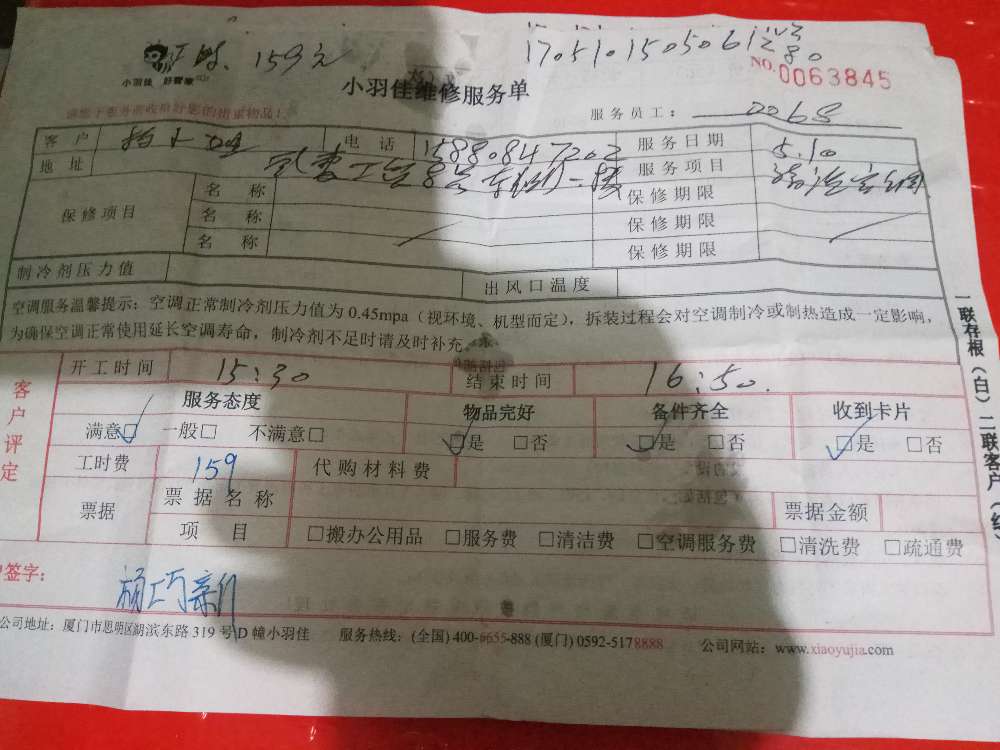 159元
1705101505061
80
小羽佳 好管家
NO.0063845
小羽佳维修服务单
服务员工: 0068
客户 电话 15880847202 服务日期 5.10
地址 服务项目
保修项目 名称 保修期限
名称 保修期限
名称 保修期限
制冷剂压力值 出风口温度
空调服务温馨提示: 空调正常制冷剂压力值为 0.45mpa (视环境、机型而定), 拆装过程会对空调制冷或制热造成一定影响,
为确保空调正常使用延长空调寿命, 制冷剂不足时请及时补充。
客户评定
开工时间 15:30 结束时间 16:50.
服务态度 物品完好 备件齐全 收到卡片
满意☑ 一般□ 不满意□ ☑是 □否 ☑是 □否 ☑是 □否
工时费 159 代购材料费
票据 票据名称 票据金额
项目 □搬办公用品 □服务费 □清洁费 □空调服务费 □清洗费 □疏通费
签字:
公司地址: 厦门市思明区湖滨东路 319 号 D 幢小羽佳 服务热线: (全国) 400-6655-888 (厦门) 0592-5178888 公司网站: www.xiaoyujia.com
一联存根(白) 二联客户